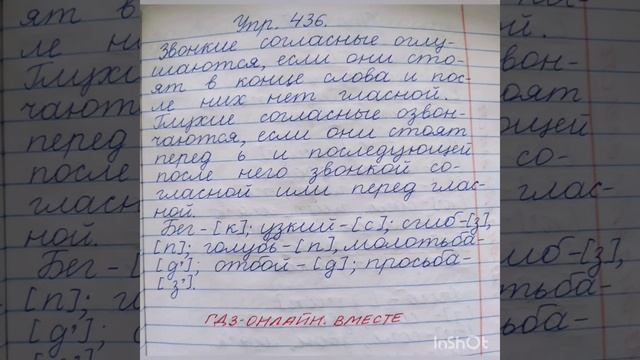 Упр. 436.
Звонкие согласные оглу-
шаются, если они сто-
ят в конце слова и пос-
ле них нет гласной.
Глухие согласные озвон-
чаются, если они стоят
перед ь и последующей
после него звонкой со-
гласной или перед глас-
ной.
Бег-[к]; узкий-[с]; сгиб-[з],
[п]; голубь-[п], молотьба-
[д’]; отбой-[д]; просьба-
[з’].
ГДЗ-ОНЛАЙН. ВМЕСТЕ
InShOt